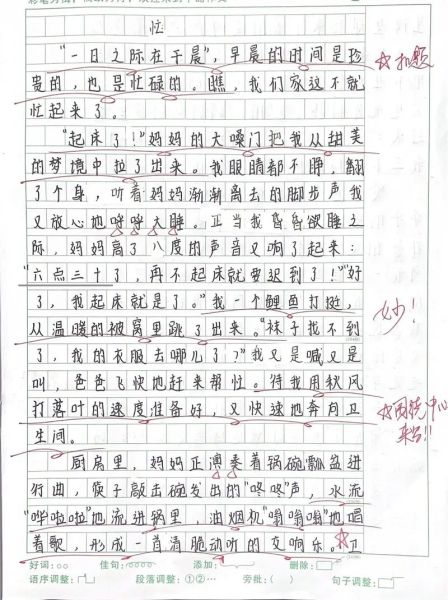 忙
“一日之际在于晨”，早晨的时间是珍
贵的，也是忙碌的。瞧，我们家这不就
忙起来了。
☆扣题
“起床了！”妈妈的大嗓门把我从甜美
的梦境中拉了出来。我眼睛都不睁，翻
了个身，听着妈妈渐渐离去的脚步声我
又放心地呼呼大睡。正当我昏昏欲睡之
际，妈妈高了八度的声音又响了起来：
“六点三十了，再不起床就要迟到了！”“好
了，我起床就是了。”我一个鲤鱼打挺，
从温暖的被窝里跳了出来。“袜子找不到
了，我的衣服去哪儿了？”我又是喊又是
妙！
叫，爸爸飞快地赶来帮忙。待我用秋风
打落叶的速度准备好，又快速地奔向卫
生间。
☆围绕中心
来写!!
厨房里，妈妈正演奏着锅碗瓢盆进
行曲，筷子敲击碗发出的“咚咚”声，水流
“哗啦啦”地流进锅里，油烟机“嗡嗡嗡”地唱
着歌，形成一首清脆动听的交响乐。☆卫
好词：○○ 佳句： 添加： 删除：
语序调整： 段落调整：①②… 旁批：（ ） 句子调整：